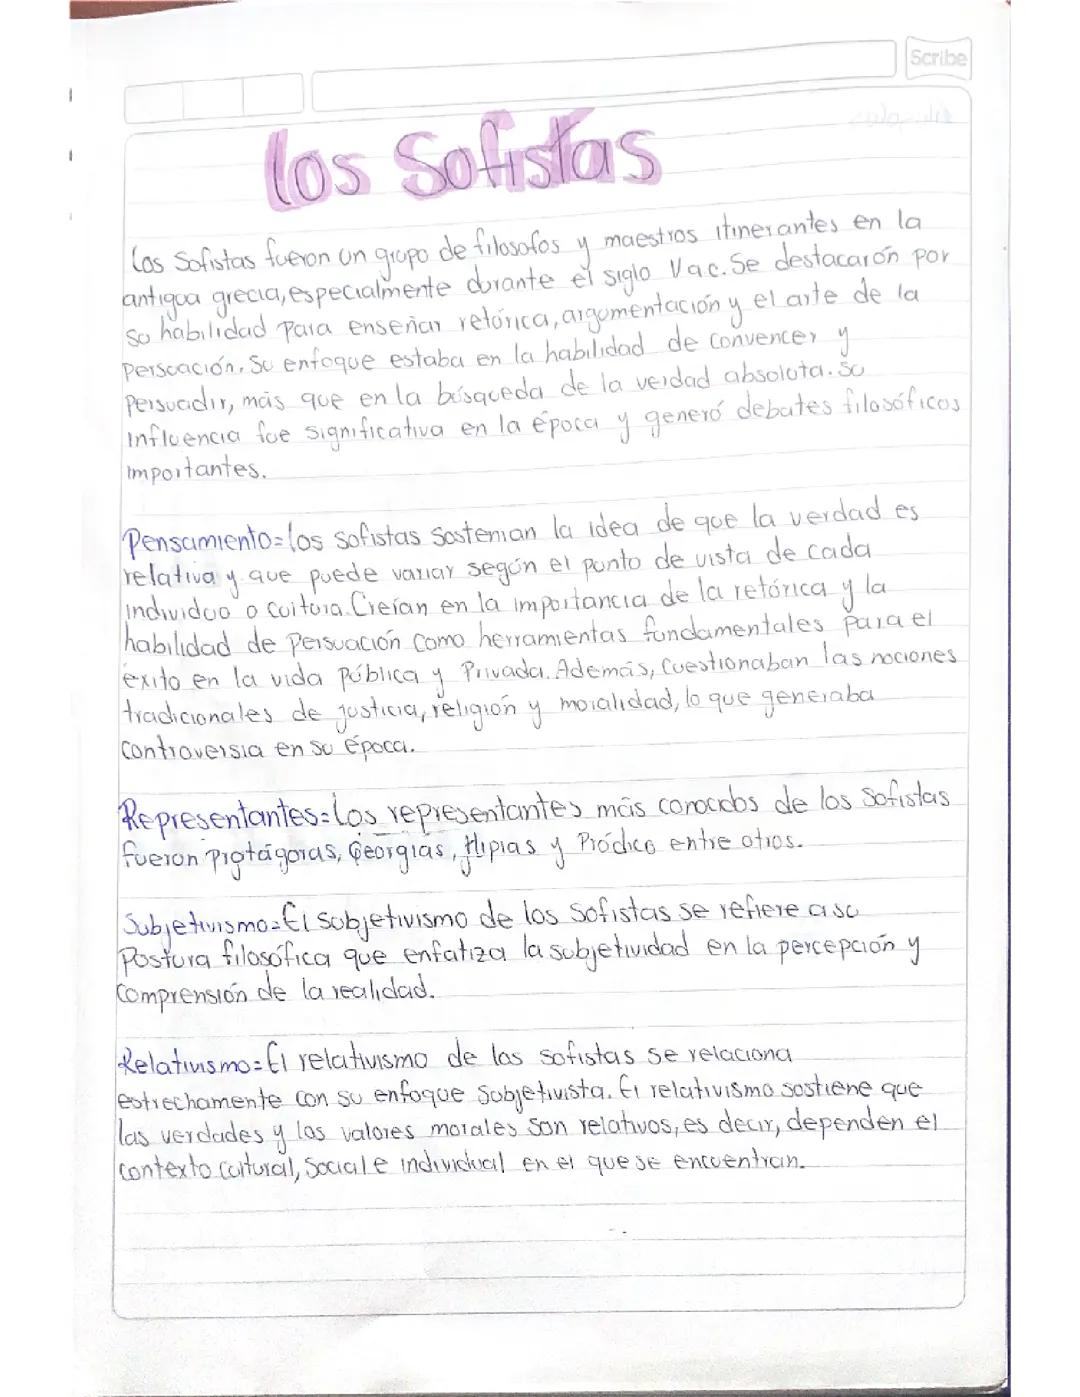 Scribe
Los Sofistas
Los Sofistas fueron un grupo de filosofos y maestros itinerantes en la
antigua grecia, especialmente durante el siglo V a c. Se destacarón por
su habilidad para enseñar retórica, argumentación y el arte de la
persuación. Su enfoque estaba en la habilidad de convencer y
persuadir, más que en la búsqueda de la verdad absoluta. Su
influencia fue significativa en la época y generó debates filosóficos
importantes.
Pensamiento=los sofistas sostenian la idea de que la verdad es
relativa y que puede variar según el punto de vista de cada
individuo o cultura. Creían en la importancia de la retórica y la
habilidad de persuación como herramientas fundamentales para el
éxito en la vida pública y Privada. Además, cuestionaban las nociones
tradicionales de justicia, religión y moralidad, lo que generaba
controversia en su época.
Representantes=Los representantes más conocidos de los Sofistas
fueron Protágoras, Georgias, Hipias y Pródico entre otros.
Subjetivismo=El subjetivismo de los sofistas se refiere a su
Postura filosófica que enfatiza la subjetividad en la percepción y
comprensión de la realidad.
Relativismo=El relativismo de los sofistas se relaciona
estrechamente con su enfoque subjetivista. El relativismo sostiene que
las verdades y los valores morales son relativos, es decir, dependen el
contexto cultural, social e individual en el que se encuentran.